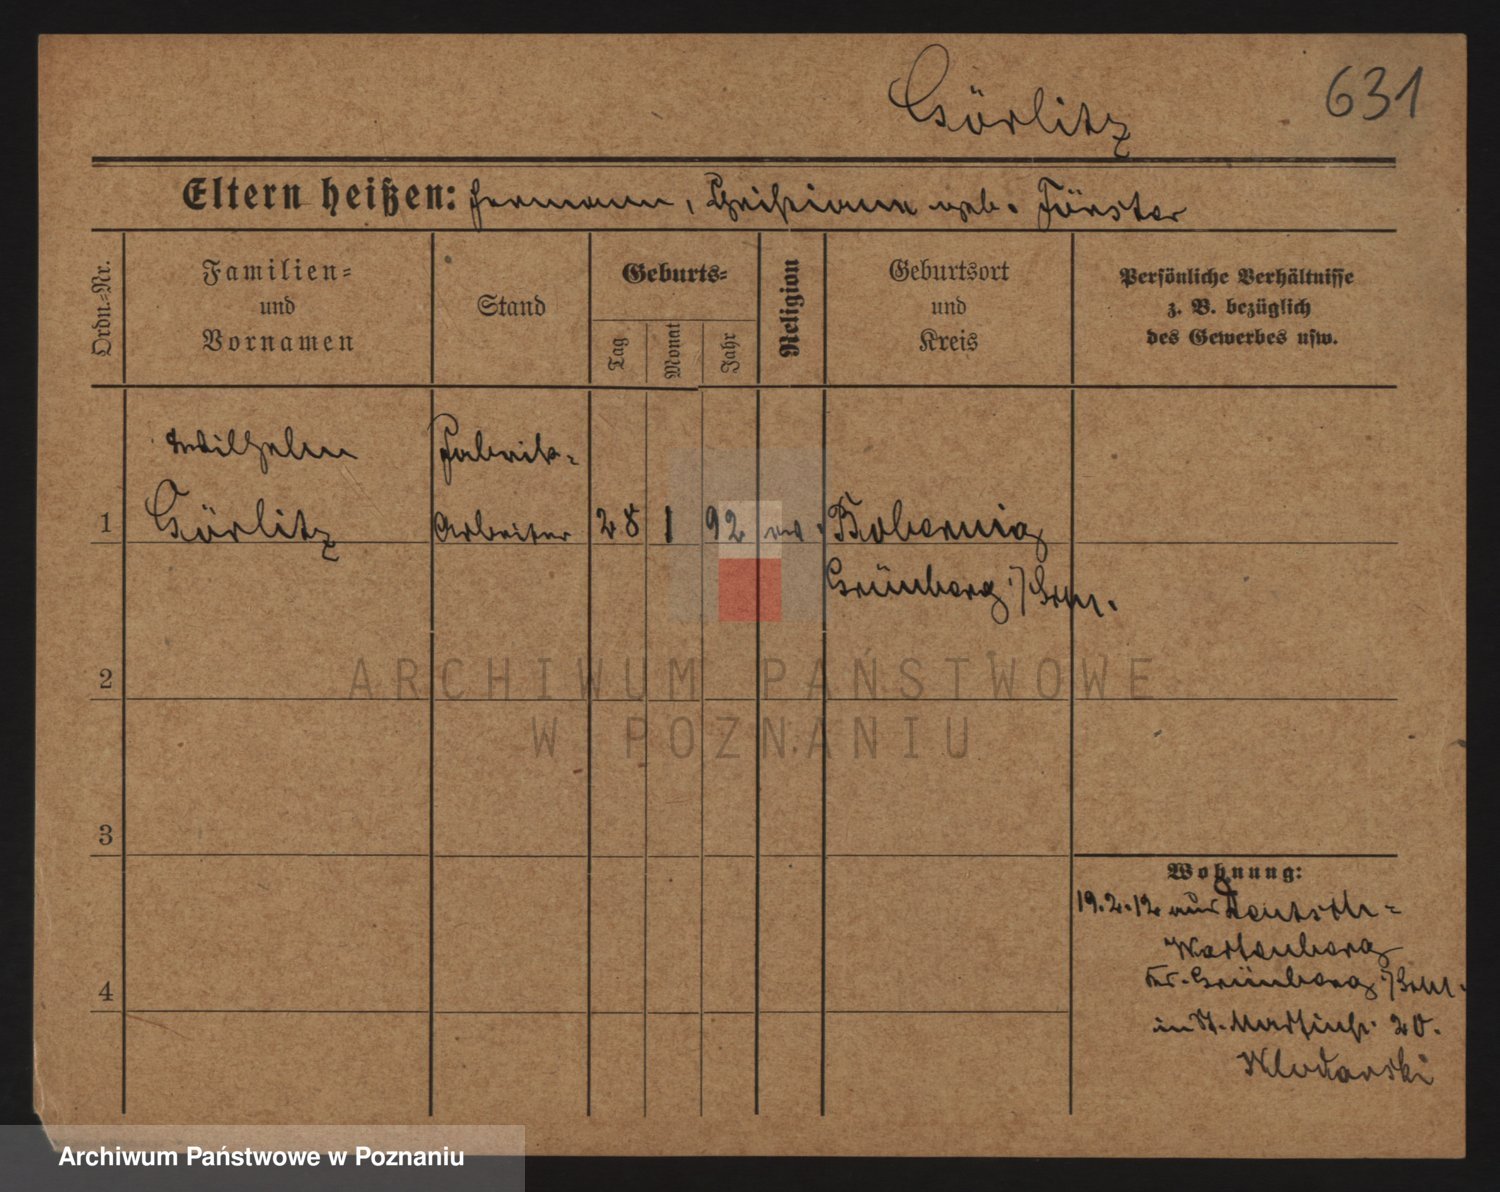 Görlitz
631
Eltern heißen: Hermann, Christiane geb. Förster
Ordn.-Nr.
Familien-
und
Vornamen
Stand
Geburts-
Tag
Monat
Jahr
Religion
Geburtsort
und
Kreis
Persönliche Verhältnisse
z. B. bezüglich
des Gewerbes usw.
Wilhelm
Fabrik-
1 Görlitz Arbeiter 28 1 92 ev. Bobernig
Grünberg i/Schl.
ARCHIWUM PAŃSTWOWE
2
W POZNANIU
3
Wohnung:
19.2.12 aus Deutsch-
Wartenberg
Kr. Grünberg i/Schl.
4
in St. Martinstr. 20.
Wlodarski
Archiwum Państwowe w Poznaniu